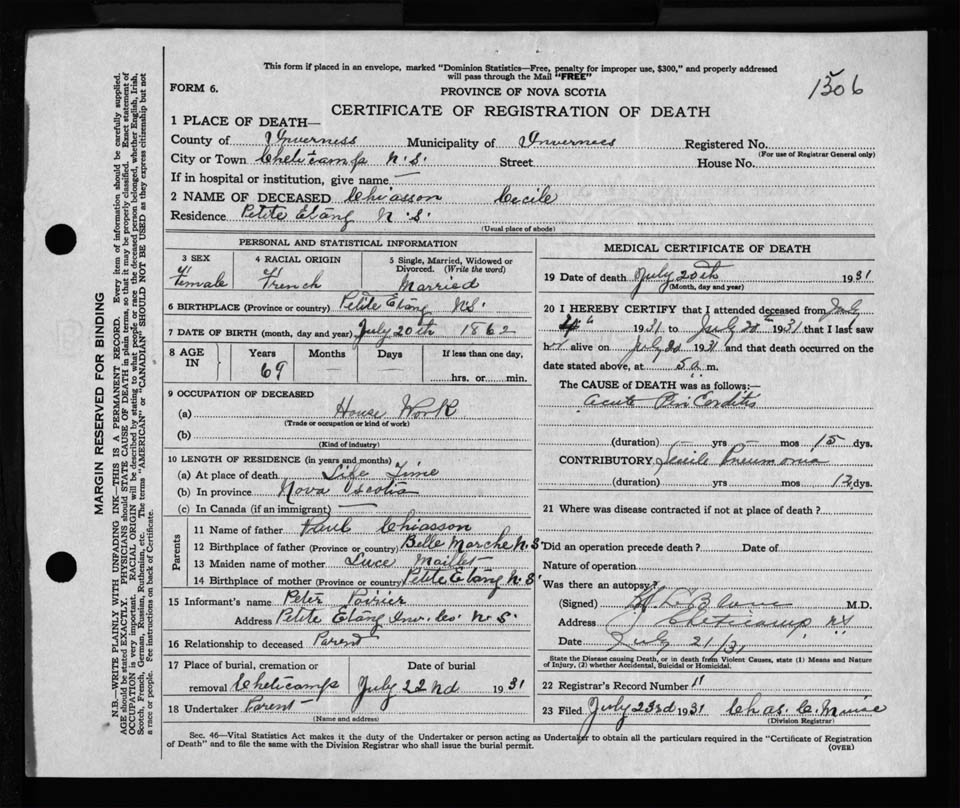 This form if placed in an envelope, marked "Dominion Statistics—Free, penalty for improper use, $300," and properly addressed
will pass through the Mail "FREE"
1506
FORM 6.
PROVINCE OF NOVA SCOTIA
CERTIFICATE OF REGISTRATION OF DEATH
1 PLACE OF DEATH—
County of Inverness Municipality of Inverness Registered No.
(For use of Registrar General only)
City or Town Cheticamp N.S. Street House No.
If in hospital or institution, give name —
2 NAME OF DECEASED Chiasson Cecile
Residence Petite Etang N.S.
(Usual place of abode)
PERSONAL AND STATISTICAL INFORMATION
3 SEX
Female
4 RACIAL ORIGIN
French
5 Single, Married, Widowed or
Divorced. (Write the word)
Married
6 BIRTHPLACE (Province or country) Petite Etang N.S.
7 DATE OF BIRTH (month, day and year) July 20th 1862
8 AGE IN
Years Months Days If less than one day,
69
hrs. or min.
9 OCCUPATION OF DECEASED
(a) House Work
(Trade or occupation or kind of work)
(b)
(Kind of industry)
10 LENGTH OF RESIDENCE (in years and months)
(a) At place of death Life Time
(b) In province Nova Scotia
(c) In Canada (if an immigrant) —
Parents
11 Name of father Paul Chiasson
12 Birthplace of father (Province or country) Belle Marche N.S
13 Maiden name of mother Luce Maillet
14 Birthplace of mother (Province or country) Petite Etang N.S'
15 Informant's name Peter Poirier
Address Petite Etang Inv. Co. N.S.
16 Relationship to deceased Parent
17 Place of burial, cremation or Date of burial
removal Cheticamp July 22nd 1931
18 Undertaker Parent
(Name and address)
MEDICAL CERTIFICATE OF DEATH
19 Date of death July 20th 1931
(Month, day and year)
20 I HEREBY CERTIFY that I attended deceased from July
1931 to July 20th 1931 that I last saw
her alive on July 20 1931 and that death occurred on the
date stated above, at 5 a. m.
The CAUSE OF DEATH was as follows:—
Acute Peri Carditis
(duration) — yrs — mos 15 dys.
CONTRIBUTORY Senile Pneumonia
(duration) yrs mos 12 dys.
21 Where was disease contracted if not at place of death?
Did an operation precede death? Date of
Nature of operation
Was there an autopsy?
(Signed) M.D.
Address Cheticamp NS
Date July 21/31
State the Disease causing Death, or in death from Violent Causes, state (1) Means and Nature
of Injury, (2) whether Accidental, Suicidal or Homicidal.
22 Registrar's Record Number 11
23 Filed July 23rd 1931 Chas. C.
(Division Registrar)
Sec. 46—Vital Statistics Act makes it the duty of the Undertaker or person acting as Undertaker to obtain all the particulars required in the "Certificate of Registration
of Death" and to file the same with the Division Registrar who shall issue the burial permit.
(OVER)
MARGIN RESERVED FOR BINDING
N.B.—WRITE PLAINLY WITH UNFADING INK—THIS IS A PERMANENT RECORD. Every item of information should be carefully supplied.
AGE should be stated EXACTLY. PHYSICIANS should STATE CAUSE OF DEATH in plain terms, so that it may be properly classified. Exact statement of
OCCUPATION is very important. RACIAL ORIGIN will be described by stating to what people or race the deceased person belonged, whether English, Irish,
Scotch, French, German, Russian, Ruthenian, etc. The terms "AMERICAN" or "CANADIAN" SHOULD NOT BE USED as they express citizenship but not
a race or people. Fee instructions on back of Certificate.